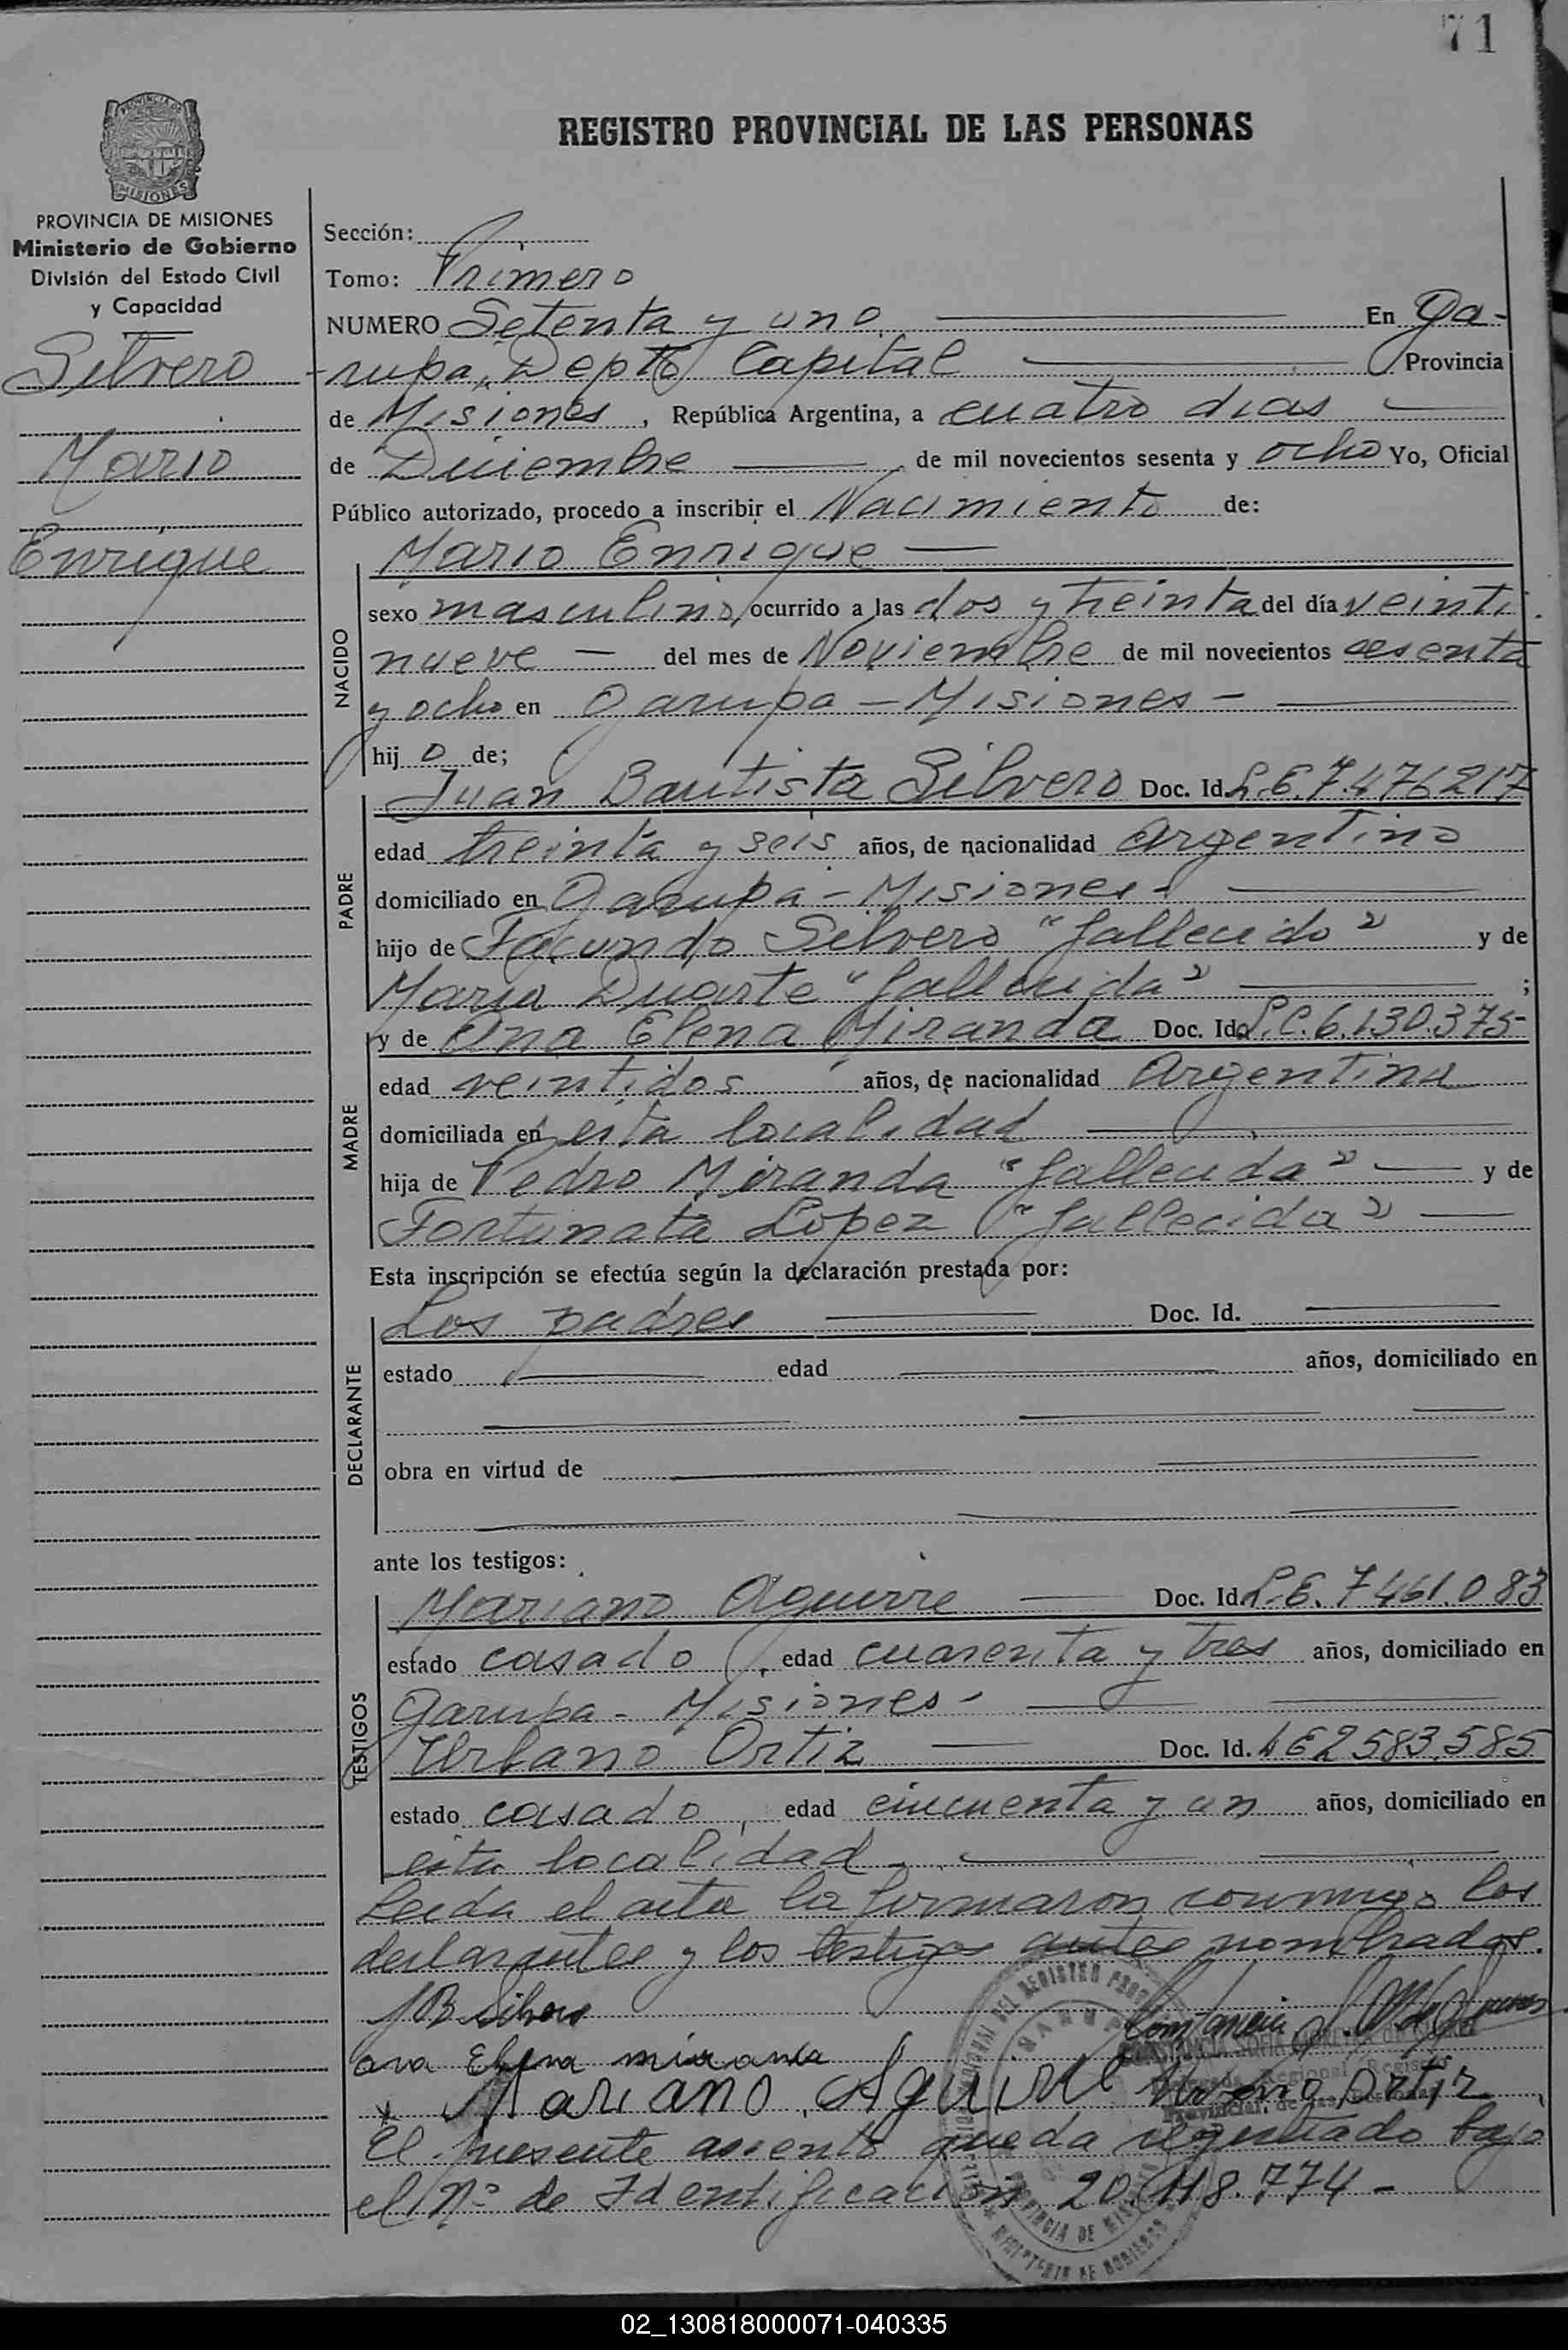 71
PROVINCIA DE
MISIONES
REGISTRO PROVINCIAL DE LAS PERSONAS
PROVINCIA DE MISIONES
Ministerio de Gobierno
División del Estado Civil
y Capacidad
Silvero
Mario
Enrique
Sección:
Tomo: Primero
NUMERO Setenta y uno En Ga-
rupa, Depto Capital Provincia
de Misiones, República Argentina, a cuatro dias
de Diciembre de mil novecientos sesenta y ocho Yo, Oficial
Público autorizado, procedo a inscribir el Nacimiento de:
NACIDO
Mario Enrique
sexo masculino, ocurrido a las dos y treinta del día veinti
nueve del mes de Noviembre de mil novecientos sesenta
y ocho en Garupa - Misiones -
hijo de;
PADRE
Juan Bautista Silvero Doc. Id. L.E.7.476217
edad treinta y seis años, de nacionalidad Argentino
domiciliado en Garupa - Misiones -
hijo de Facundo Silvero "fallecido" y de
Maria Duarte "fallecida" ;
MADRE
y de Ana Elena Miranda Doc. Id. L.C.6.130.375-
edad veintidos años, de nacionalidad Argentina
domiciliada en esta localidad
hija de Pedro Miranda "fallecida" y de
Fortunata Lopez "fallecida"
Esta inscripción se efectúa según la declaración prestada por:
DECLARANTE
Los padres Doc. Id.
estado edad años, domiciliado en
obra en virtud de
ante los testigos:
TESTIGOS
Mariano Aguirre Doc. Id. L.E. 7461.083
estado casado, edad cuarenta y tres años, domiciliado en
Garupa - Misiones -
Urbano Ortiz Doc. Id. LE2583.585
estado casado, edad cincuenta y un años, domiciliado en
esta localidad
Leida el acta la firmaron conmigo los
declarantes y los testigos antes nombrados.
J B Silvero
Constancia S. M de
ana Elena miranda
Mariano Aguirre Urbano Ortiz
El presente asiento queda registrado bajo
el Nº de Identificación 20.118.774 -
02_130818000071-040335